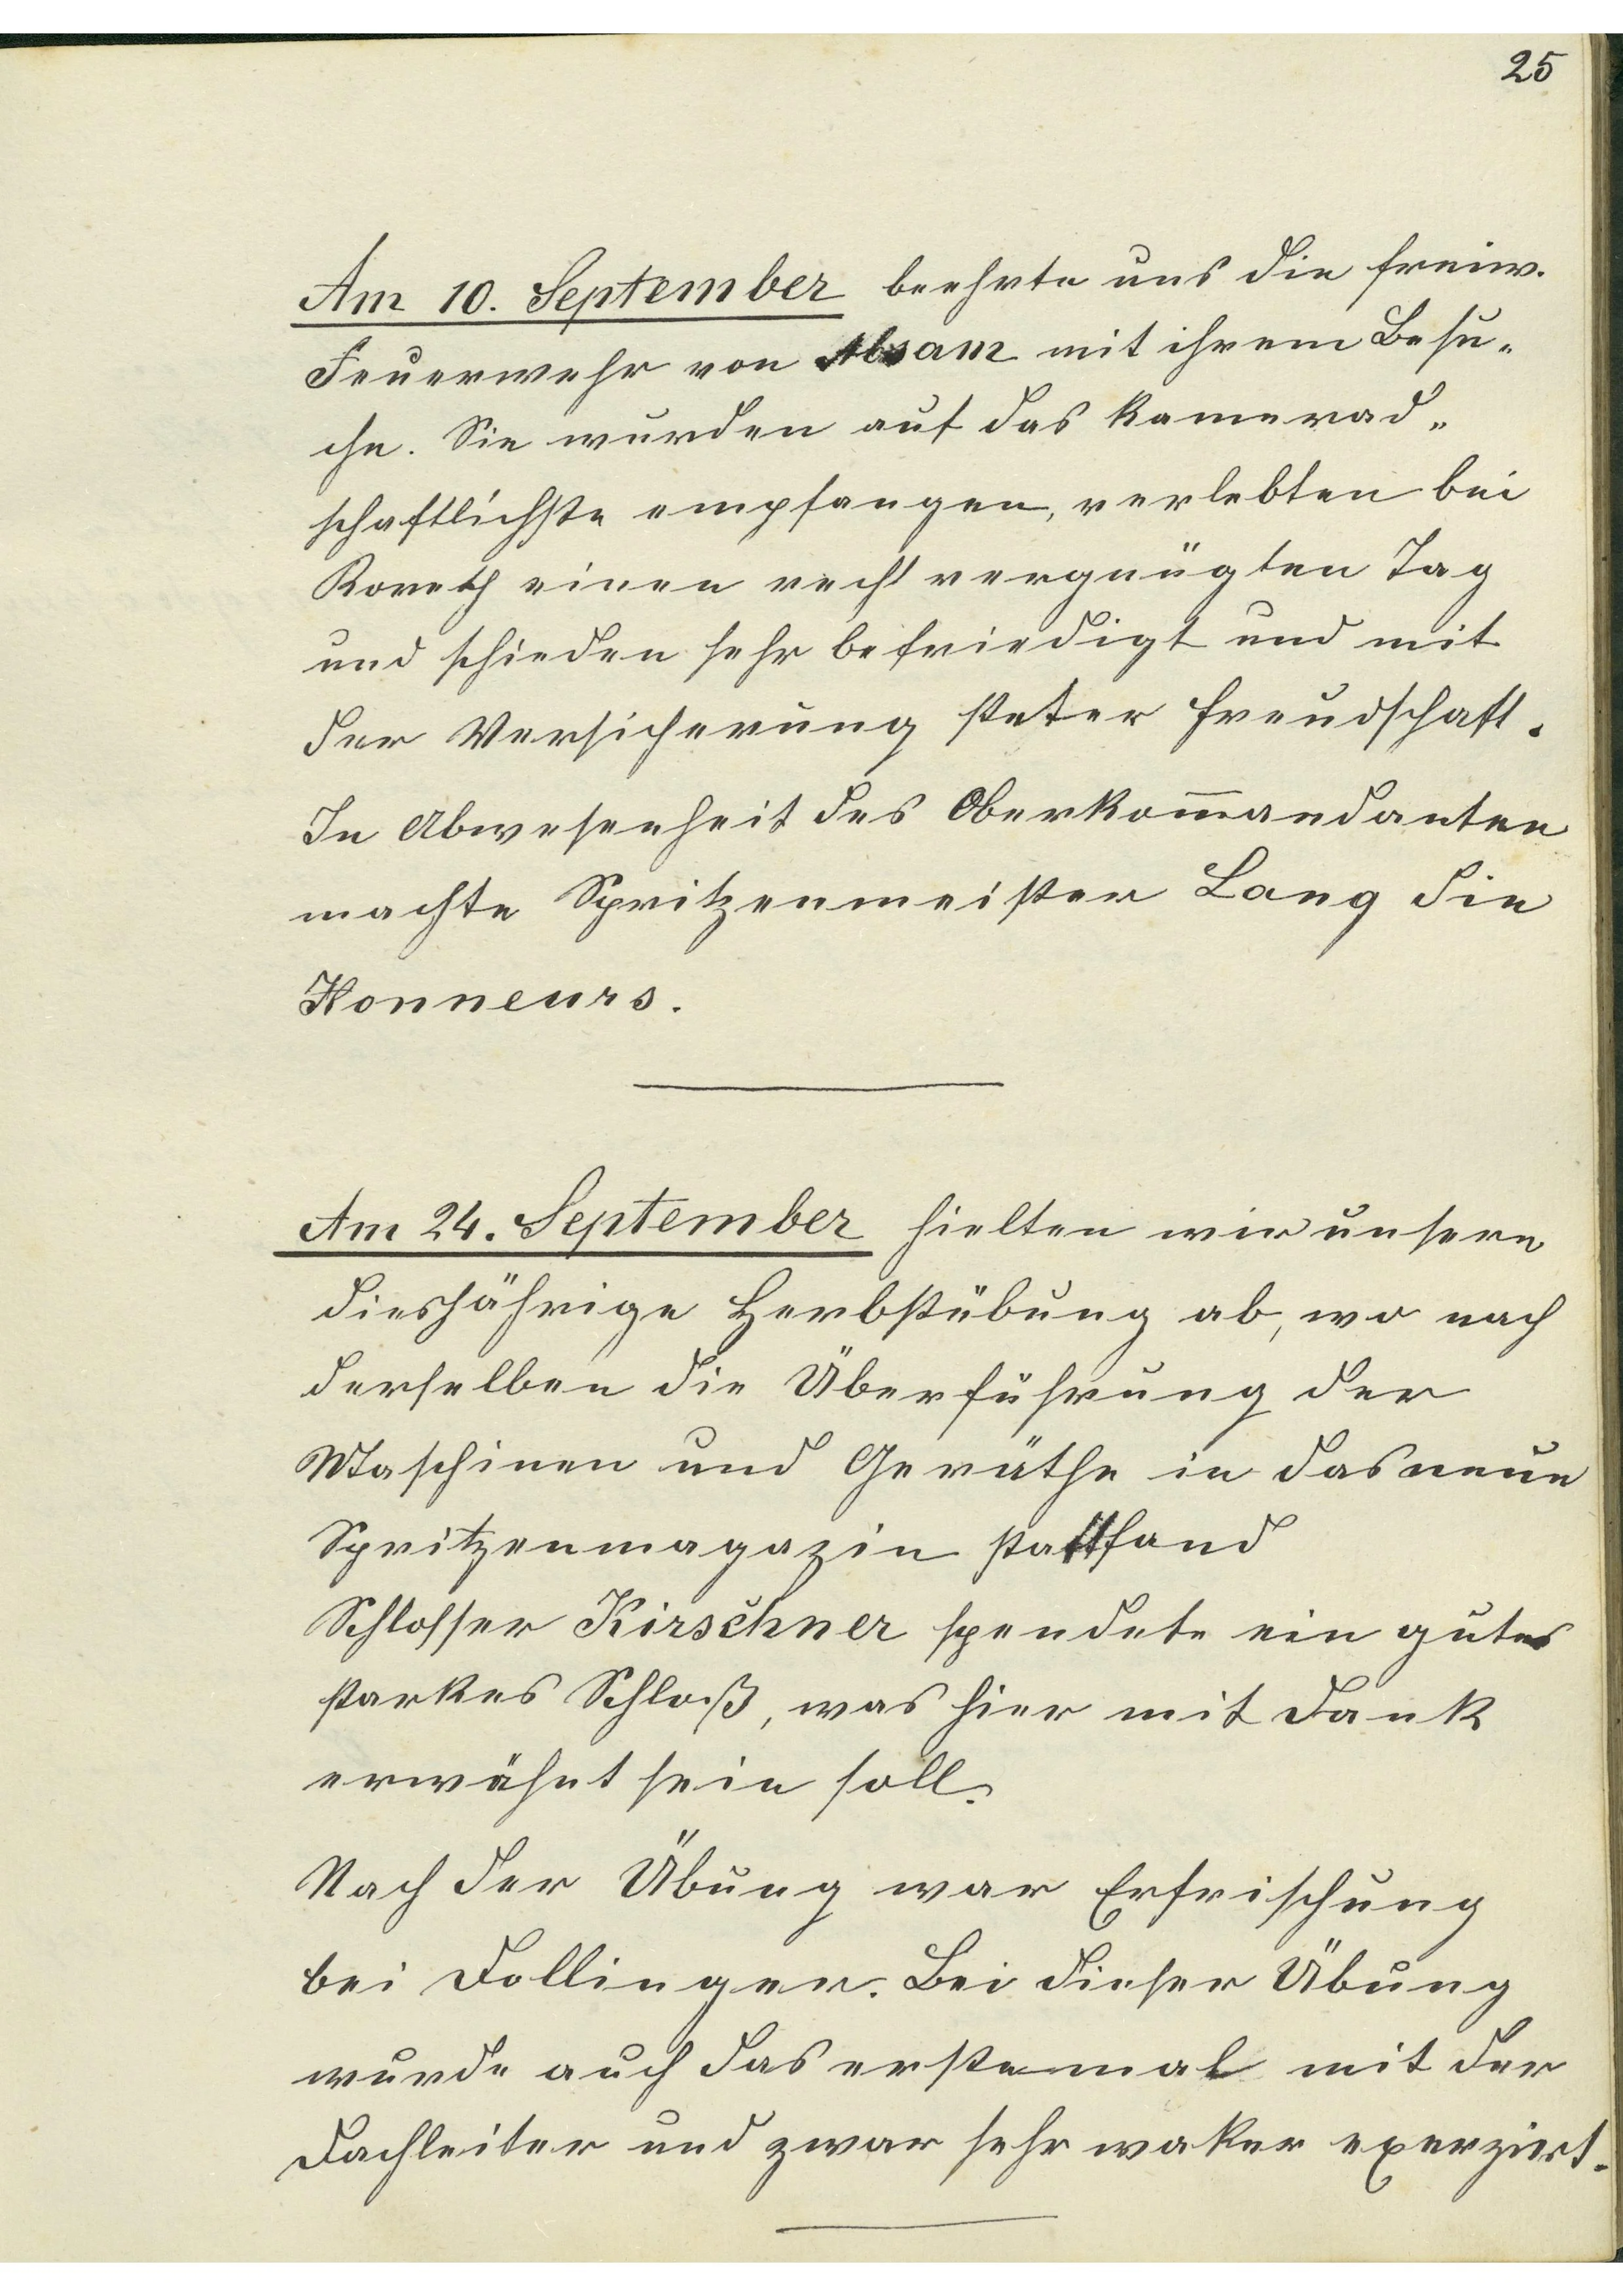 25
Am 10. September beehrte uns die freiw.
Feuerwehr von Absam mit ihrem Besu„
che. Sie wurden auf das kamerad„
schaftlichste empfangen, verlebten bei
Koreth einen recht vergnügten Tag
und schieden sehr befriedigt und mit
der Versicherung steter Freudschaft.
In Abwesenheit des Oberkom̅andanten
machte Spritzenmeister Lang die
Honneurs.
Am 24. September hielten wir unsere
diesjährige Herbstübung ab, wo nach
derselben die Überführung der
Maschinen und Geräthe in das neue
Spritzenmagazin stattfand
Schlosser Kirschner spendete ein gutes
starkes Schloß, was hier mit Dank
erwähnt sein soll.
Nach der Übung war Erfrischung
bei Dollinger. Bei dieser Übung
wurde auch das erstemal mit der
Dachleiter und zwar sehr waker exerziert.